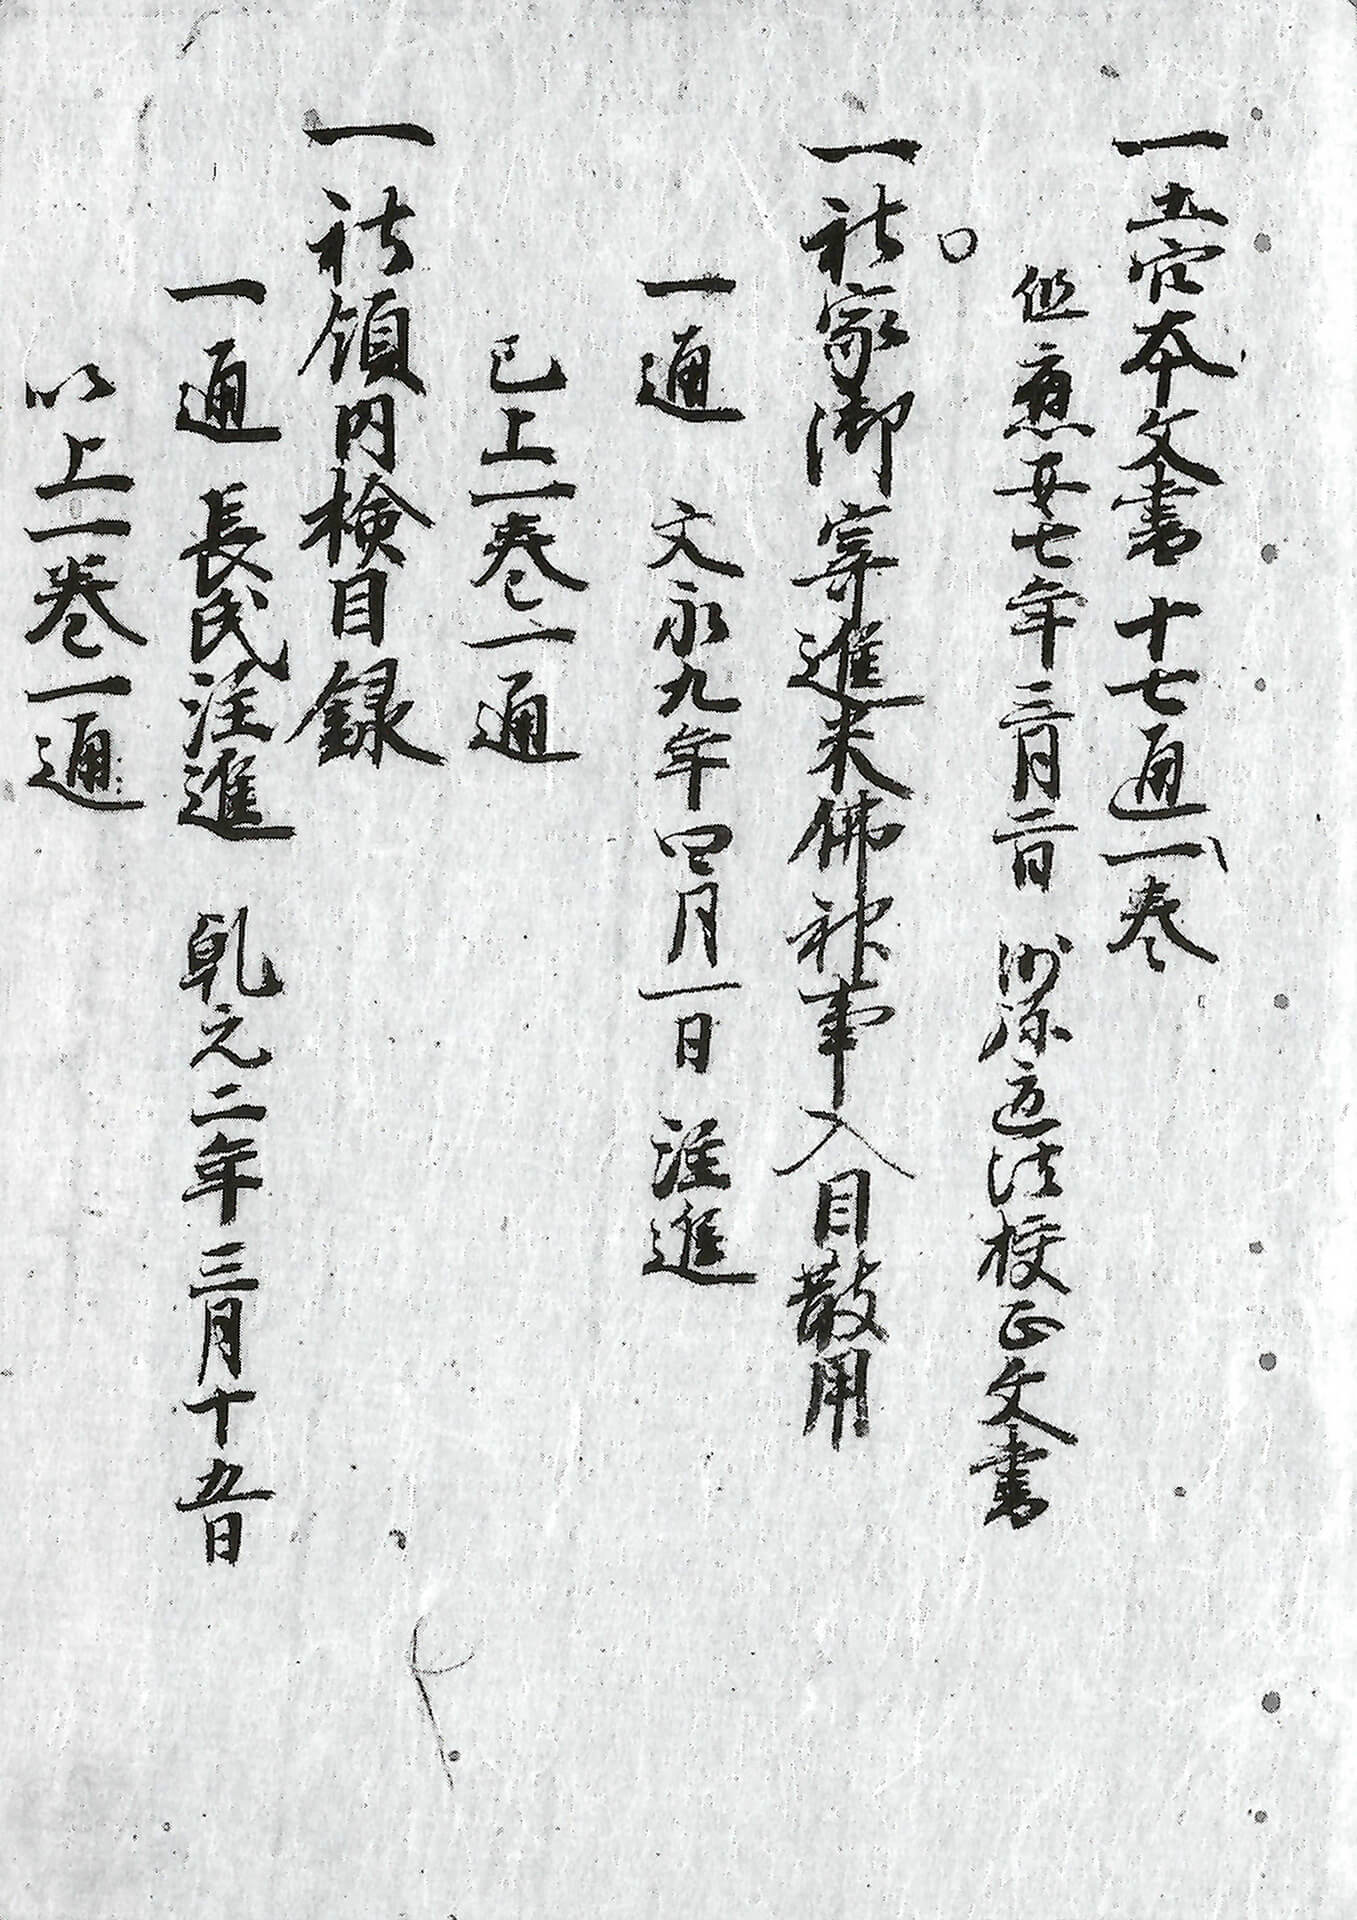 一五宮本文書十七通一巻
但應安七年三月二日沙弥道法校正文書
一社家御寄進米佛神事入目散用
一通 文永九年四月一日注進
已上一巻一通
一社領内検目録
一通 長氏注進 乾元二年三月十五日
以上一巻一通